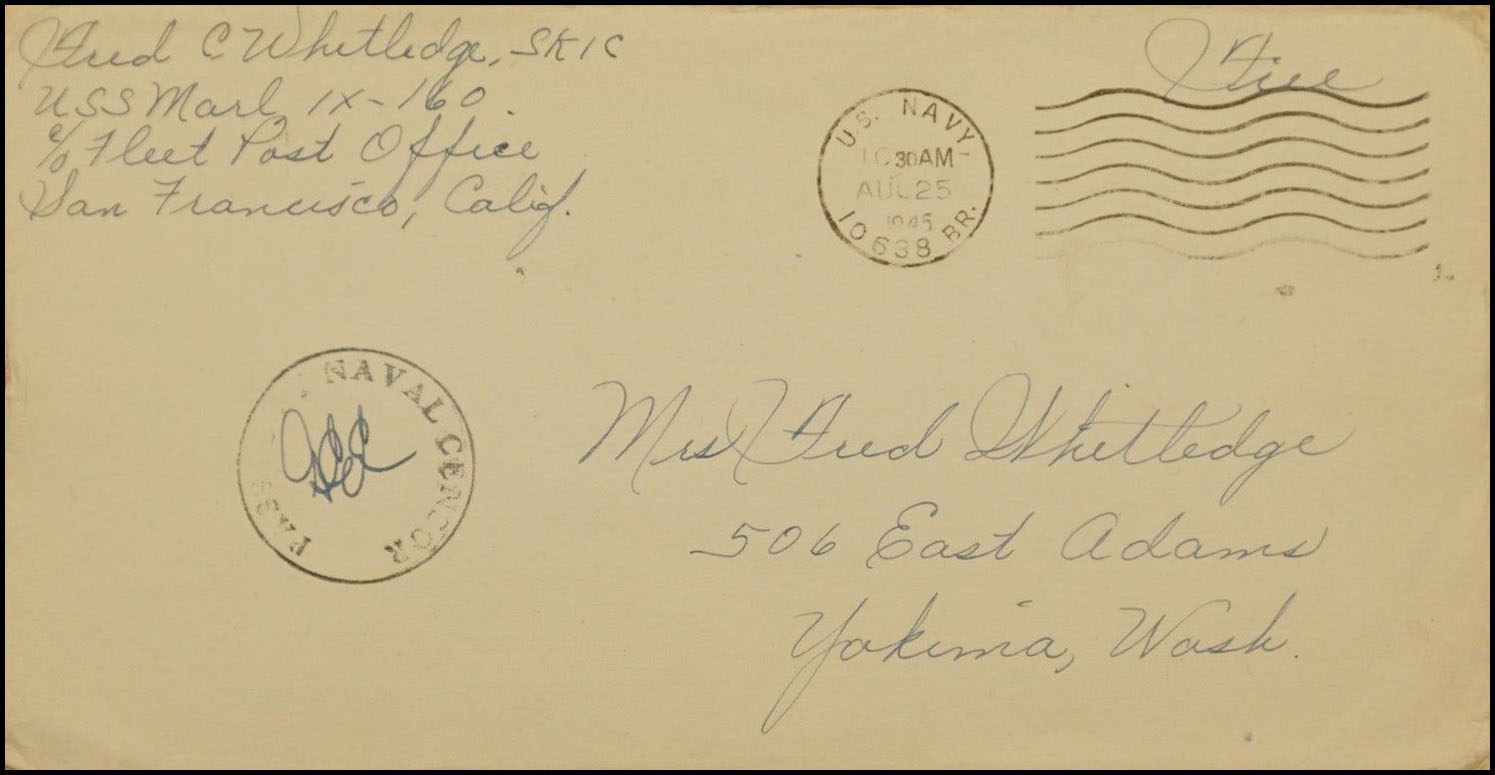 Fred C Whitledge, SK1C
USS Marl IX-160
c/o Fleet Post Office
San Francisco, Calif.
Free
U.S. NAVY
10 30AM
AUG 25
1945
10638 BR.
PASSED
NAVAL CENCOR
Mrs Fred Whitledge
506 East Adams
Yakima, Wash.